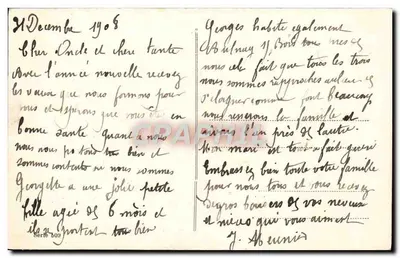 31 Decembre 1908
Cher Oncle et chere tante
Avec l'année nouvelle recevez
les vœux que nous formons pour
vous et esperons que vous en
bonne santé quand a nous
nous nous portons bien et
sommes contents nous sommes
Georgette a une jolie petite
fille agée de 6 mois et
ils se portent tou bien
Georges habite egalement
Aulnay s/ Bois tou
cela fait que touts les trois
nous sommes rapprochés au lieu
s'eloigner comme font beaucoup
nous reverons la famille et
vivons bien près de l'autre.
Mon mari est tout a fait gueri
Embrassez bien toute votre famille
pour nous tous et vous recevez
de gros baisers de vos neveux
et nieces qui vous aiment
J. Meunier